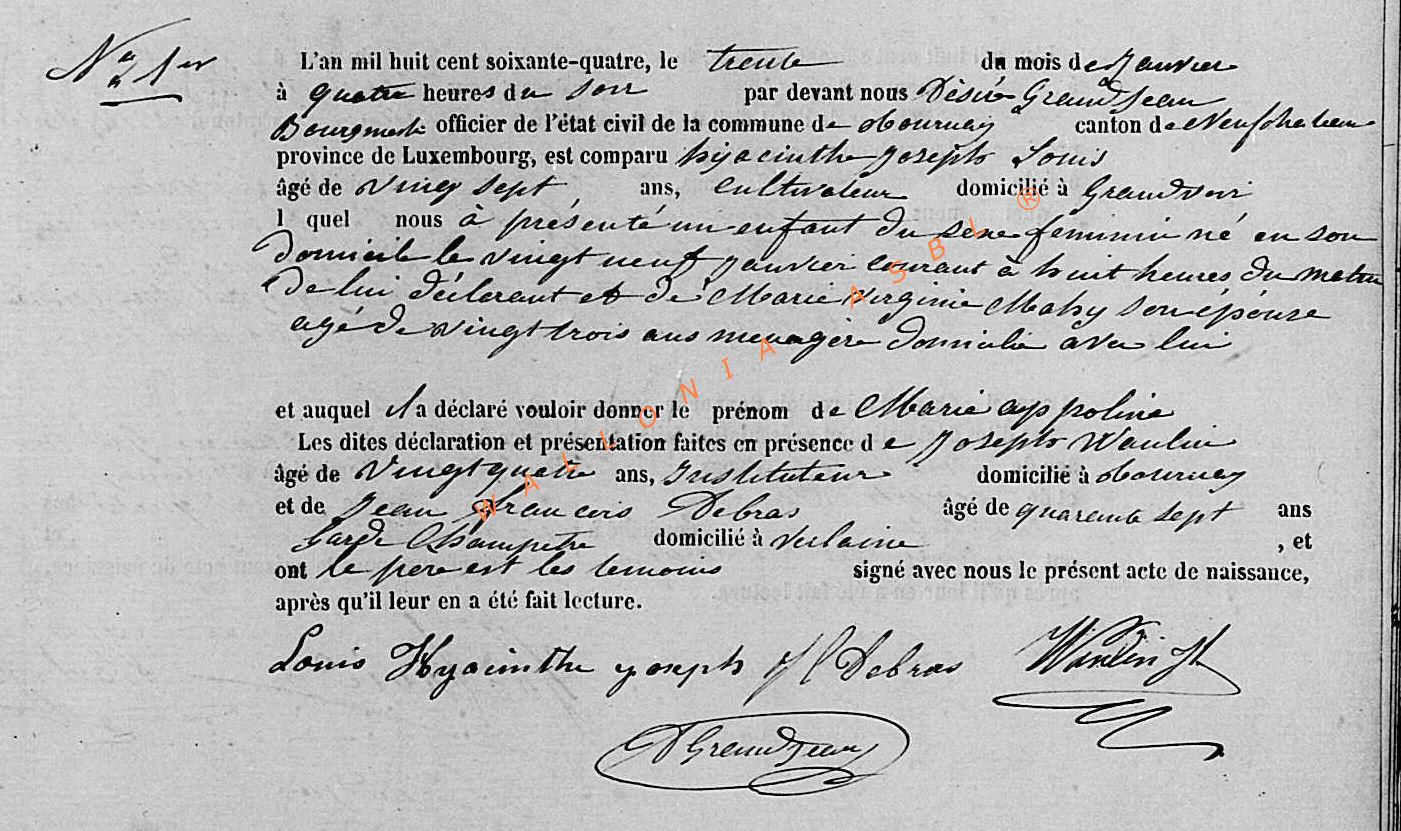 N° 1er
L'an mil huit cent soixante-quatre, le trente du mois de Janvier
à quatre heures du soir par devant nous Désiré Grandjean
Bourgmestre officier de l'état civil de la commune de Tournay canton de Neufchateau
province de Luxembourg, est comparu hyacinthe Joseph Louis
âgé de vingt sept ans, Cultivateur domicilié à Grandvoir
l quel nous à présenté un enfant du sexe feminin né en son
domicile le vingt neuf Janvier courant à huit heures du matin
De lui déclarant et de Marie Virginie Mahy son épouse
agé de vingt trois ans menagère domicilié avec lui
et auquel il a déclaré vouloir donner le prénom de Marie appoline
Les dites déclaration et présentation faites en présence de Joseph Waulin
âgé de Vingt quatre ans, Instituteur domicilié à Tournay
et de Jean francois Debras âgé de quarente sept ans
Garde Champetre domicilié à Verlaine , et
ont le père est les temoins signé avec nous le présent acte de naissance,
après qu'il leur en a été fait lecture.
Louis Hyacinthe joseph Jf Debras Waulin Jh
D Grandjean
WALLONIA ASBL ®